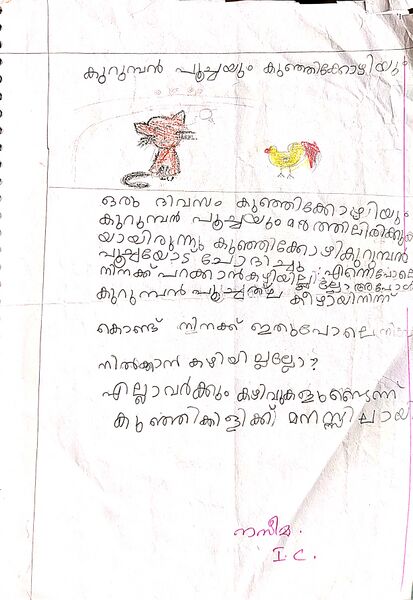 കുറുമ്പൻ പൂച്ചയും കുഞ്ഞിക്കോഴിയും
ഒരു ദിവസം കുഞ്ഞിക്കോഴിയും
കുറുമ്പൻ പൂച്ചയും മരത്തിലിരിക്കുക
യായിരുന്നു കുഞ്ഞിക്കോഴികുറുമ്പൻ
പൂച്ചയോട് ചോദിച്ചു
നിനക്ക് പറക്കാൻകഴിയില്ലല്ലോ അപ്പോൾ
കുറുമ്പൻ പൂച്ച തല കീഴായിനിന്ന്
കൊണ്ട് നിനക്ക് ഇതുപോലെ
നിൽക്കാൻ കഴിയി ല്ലല്ലോ?
എല്ലാവർക്കും കഴിവുകളുണ്ടെന്ന്
കുഞ്ഞിക്കിളിക്ക് മനസ്സിലായി
നാസിമ.
I.C.